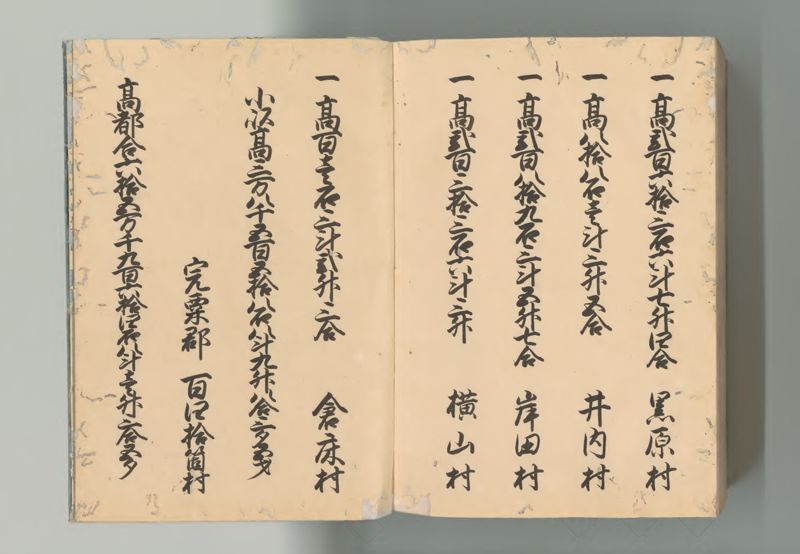 一高弐百六拾三石六斗七升四合 黒原村
一高八拾八石壱斗三升五合 井内村
一高弐百八拾九石三斗五升七合 岸田村
一高弐百三拾三石六斗三升 横山村
一高百壱石三斗弐升三合 倉床村
小以高三万八千五百五拾八石八斗九升八合三夕五才
宍粟郡 百四拾箇村
高都合六拾五万千九百六拾四石八斗壱升三合五夕